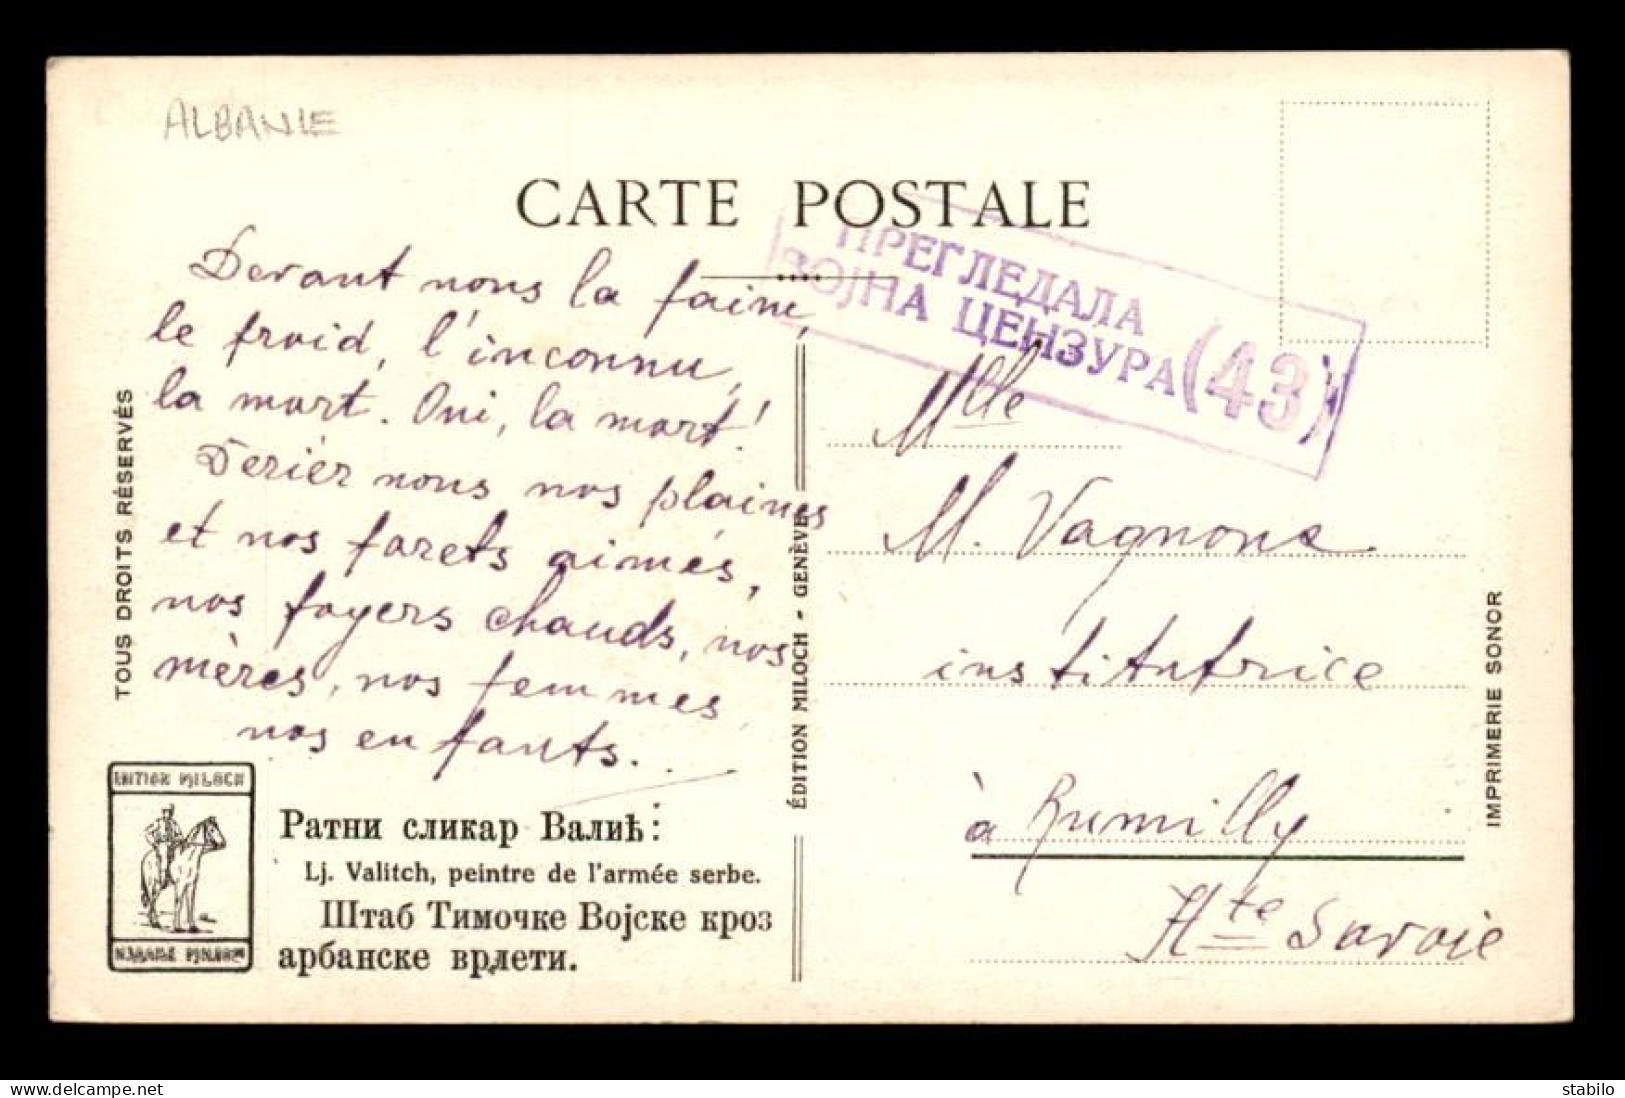 ALBANIE
CARTE POSTALE
ПРЕГЛЕДАЛА
ВОЈНА ЦЕНЗУРА (43)
Devant nous la faim,
le froid, l'inconnu,
la mort. Oui, la mort!
Deriér nous nos plaines
et nos forets aimés,
nos foyers chauds, nos
mères, nos femmes,
nos enfants.
TOUS DROITS RÉSERVÉS
EDITION MILOCH
Ратни сликар Валић:
Lj. Valitch, peintre de l'armée serbe.
Штаб Тимочке Војске кроз
арбанске врлети.
ÉDITION MILOCH - GENÈVE
Mlle
M. Vagnone
institutrice
à Rumilly
Hte Savoie
IMPRIMERIE SONOR
stabilo
www.delcampe.net